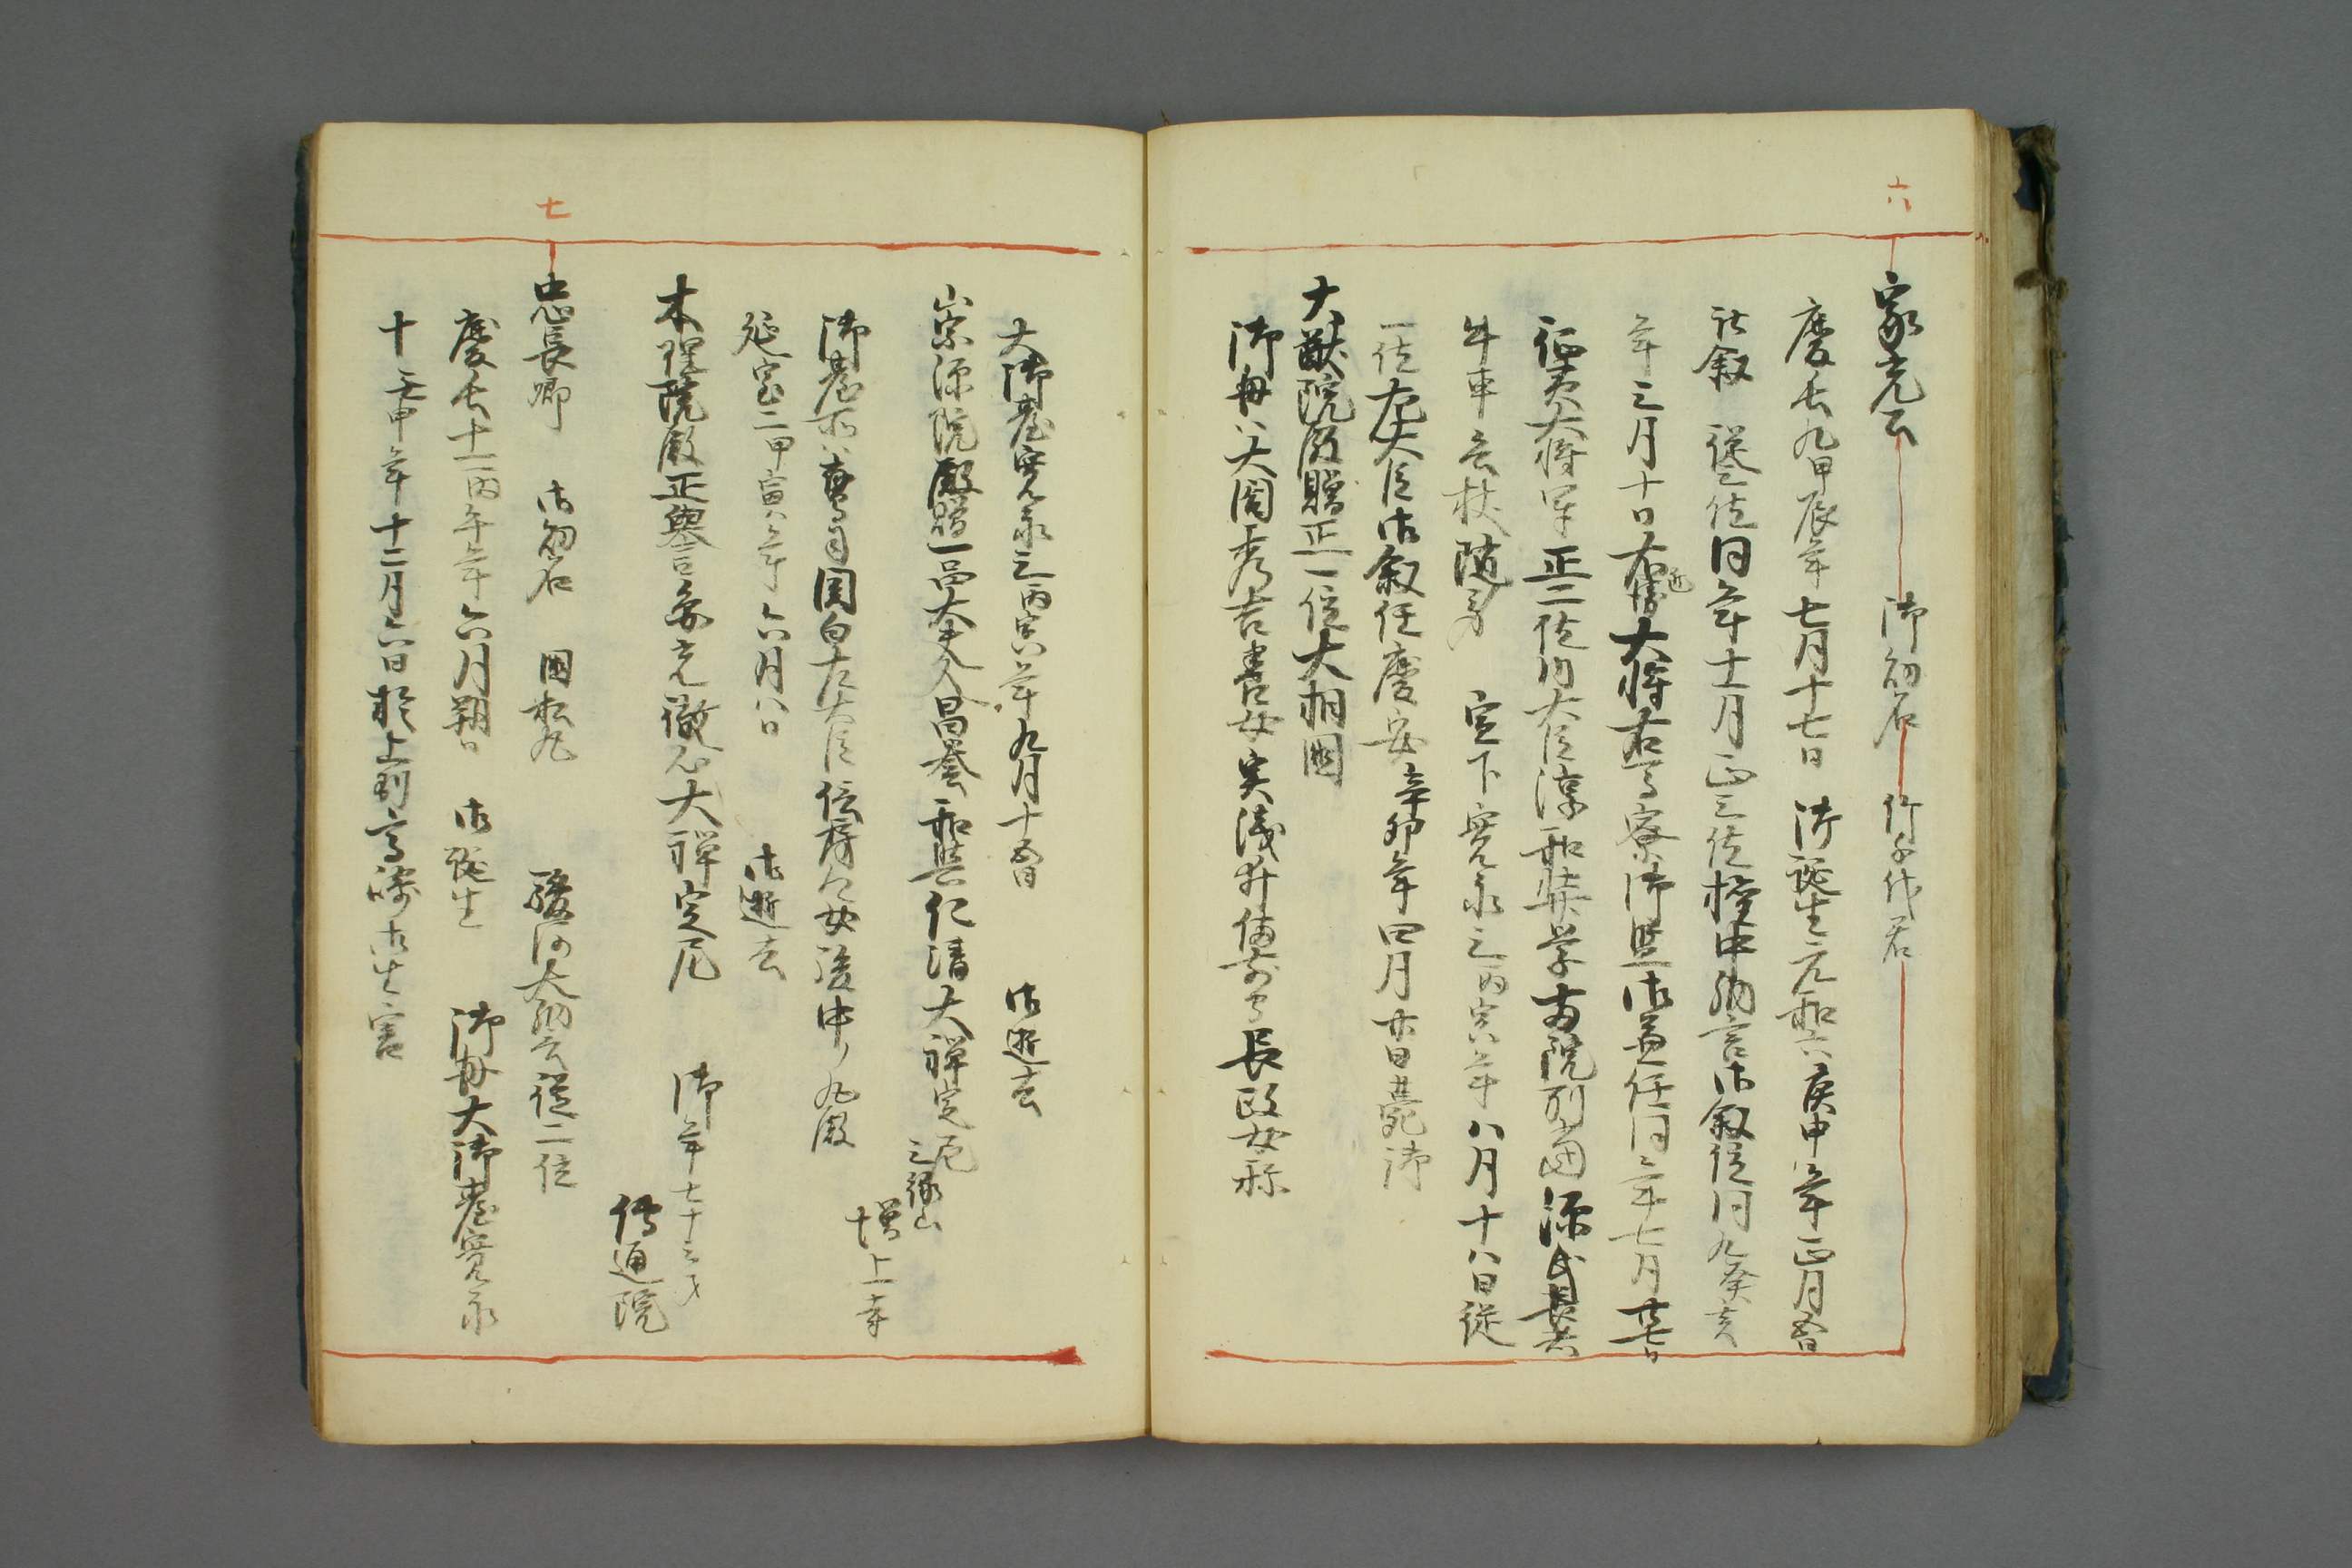 六
家光公 御幼名 竹千代君
慶長九甲辰年七月十七日 御誕生元和六庚申年正月五日
御叙 従三位同年十一月正三位権中納言御叙位同九癸亥
年三月十日右近大将右馬寮御監御兼任同年七月廿七日
征夷大将軍正二位内大臣淳和奨学両院別当源氏長者
牛車兵杖随身 宣下寛永三丙寅年八月十八日従
一位左大臣御叙任慶安辛卯年四月廿日薨御
大猷院殿贈正一位大相国
御母ハ大閤秀吉養女実浅井備前守長政女称
大御台寛永三丙寅年九月十五日 御逝去
崇源院殿贈一品大夫人昌誉和興仁清大禅定尼 三縁山
増上寺
御台所ハ鷹司関白左大臣信房公女後中ノ丸殿
延宝二甲寅年六月八日 御逝去
本理院殿正誉 光徹心大禅定尼 御年七十三才
伝通院
七
忠長卿 御幼名 国松丸 駿河大納言従二位
慶長十一丙午年六月朔日 御誕生 御母大御台寛永
十壬申年十二月六日於上州高崎御生害